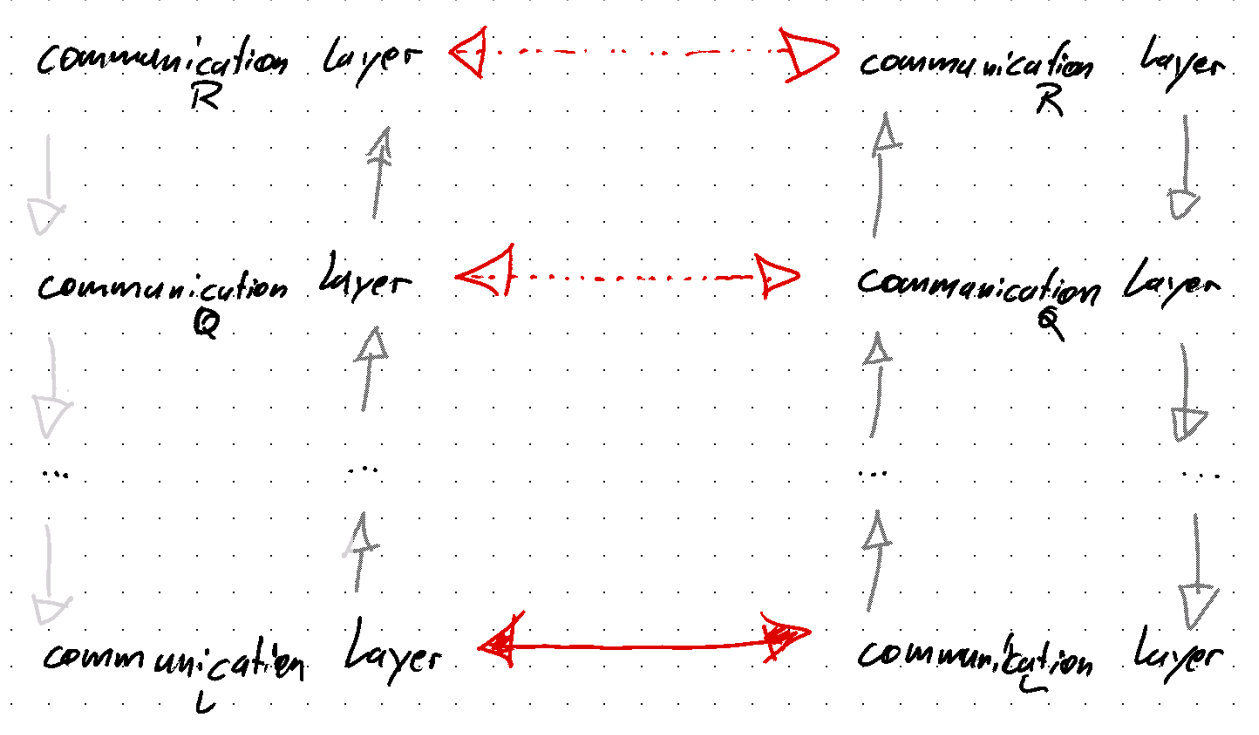 communication layer communication layer
R R
communication layer communication layer
Q Q
... ... ... ...
communication layer communication layer
L L